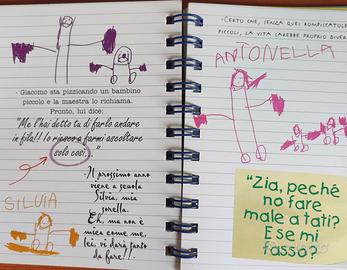 - Giacomo sta pizzicando un bambino
piccolo e la maestra lo richiama.
Pronto, lui dice:
"Me l'hai detto tu di farlo andare
in fila!! Io riesco a farmi ascoltare
solo così...
Il prossimo anno
viene a scuola
Silvia, mia
sorella.
Eh, ma non è
mica come me,
lei, vi darà tanto
da fare!!-
SILVIA
- CERTO CHE, SENZA QUEI ROMPISCATOLE
PICCOLI, LA VITA SAREBBE PROPRIO DIVER
ANTONELLA
"Zia, peché
no fare
male a tati?
E se mi
fasso?